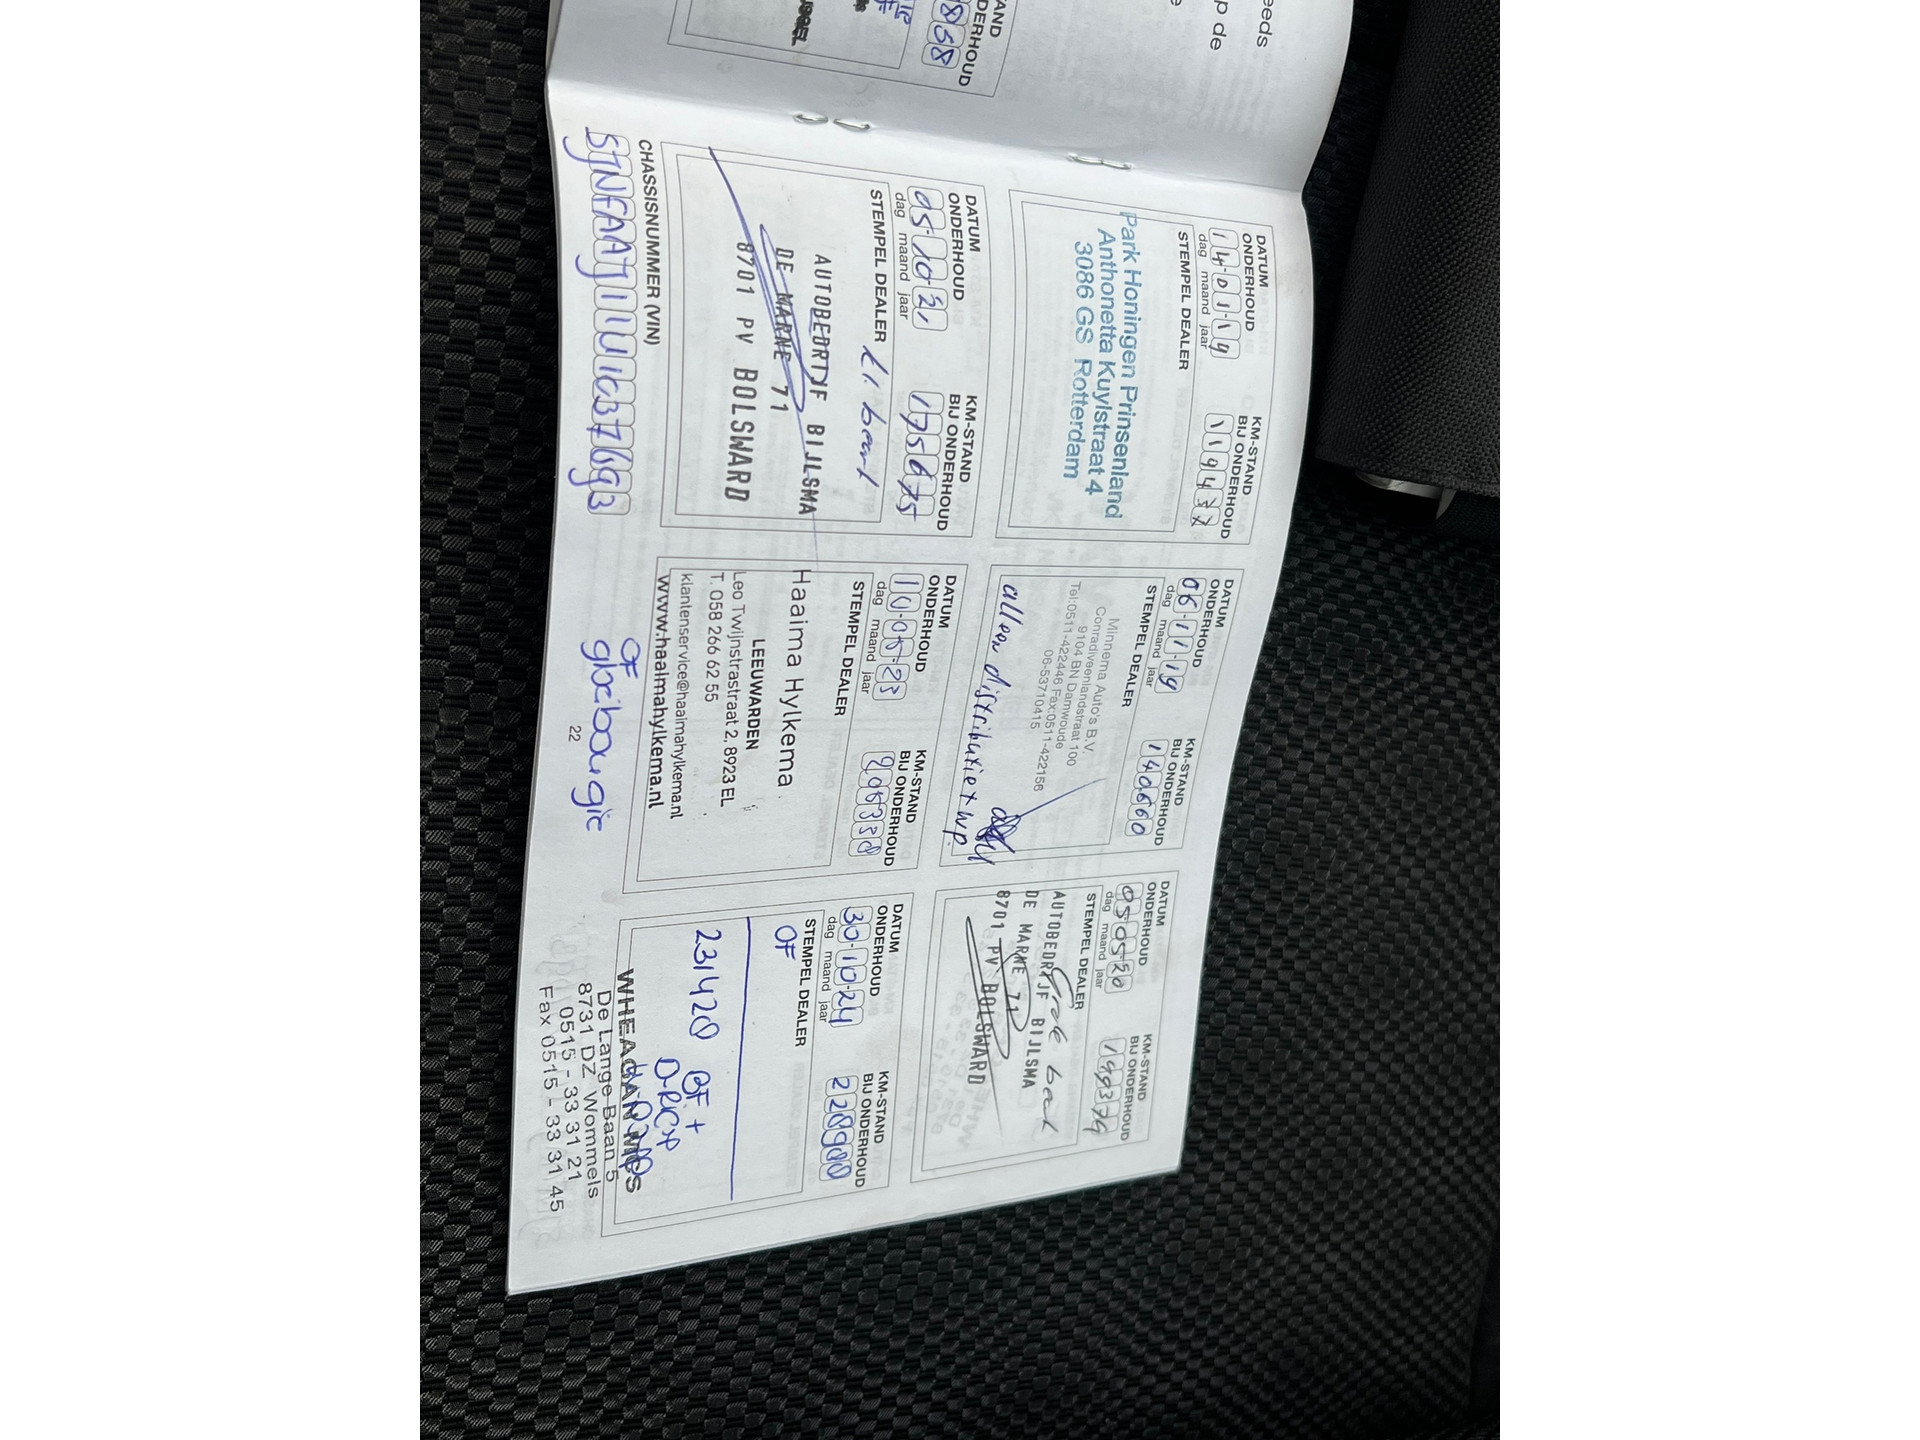 eeds
p de
e
TAND
DERHOUD
DATUM
ONDERHOUD
14-01-19
dag maand jaar
KM-STAND
BIJ ONDERHOUD
STEMPEL DEALER
Park Honingen Prinsenland
Anthonetta Kuylstraat 4
3086 GS Rotterdam
DATUM
ONDERHOUD
06-11-19
dag maand jaar
KM-STAND
BIJ ONDERHOUD
140660
STEMPEL DEALER
Minnema Auto's B.V.
Conradiveenlandstraat 100
9104 BN Damwoude
Tel:0511-422446 Fax:0511-422156
06-53710415
alleen distributie + wp.
DATUM
ONDERHOUD
05-05-20
dag maand jaar
KM-STAND
BIJ ONDERHOUD
STEMPEL DEALER
Grote beurt
AUTOBEDRIJF BIJLSMA
DE MARNE 71
8701 PV BOLSWARD
DATUM
ONDERHOUD
05-10-21
dag maand jaar
KM-STAND
BIJ ONDERHOUD
175675
STEMPEL DEALER
kl. beurt
AUTOBEDRIJF BIJLSMA
DE MARNE 71
8701 PV BOLSWARD
DATUM
ONDERHOUD
10-05-23
dag maand jaar
KM-STAND
BIJ ONDERHOUD
205350
STEMPEL DEALER
Haaima Hylkema
LEEUWARDEN
Leo Twijnstrastraat 2, 8923 EL
T. 058 266 62 55
klantenservice@haaimahylkema.nl
www.haaimahylkema.nl
DATUM
ONDERHOUD
30-10-24
dag maand jaar
KM-STAND
BIJ ONDERHOUD
228900
STEMPEL DEALER
OF
231420 BF +
WHEAGAN MGS
De Lange Baan 5
8731 DZ Wommels
0515 - 33 31 21
Fax 0515 - 33 31 45
CHASSISNUMMER (VIN)
SJNFAAJ11U1037693
OF
gloeibougie
22